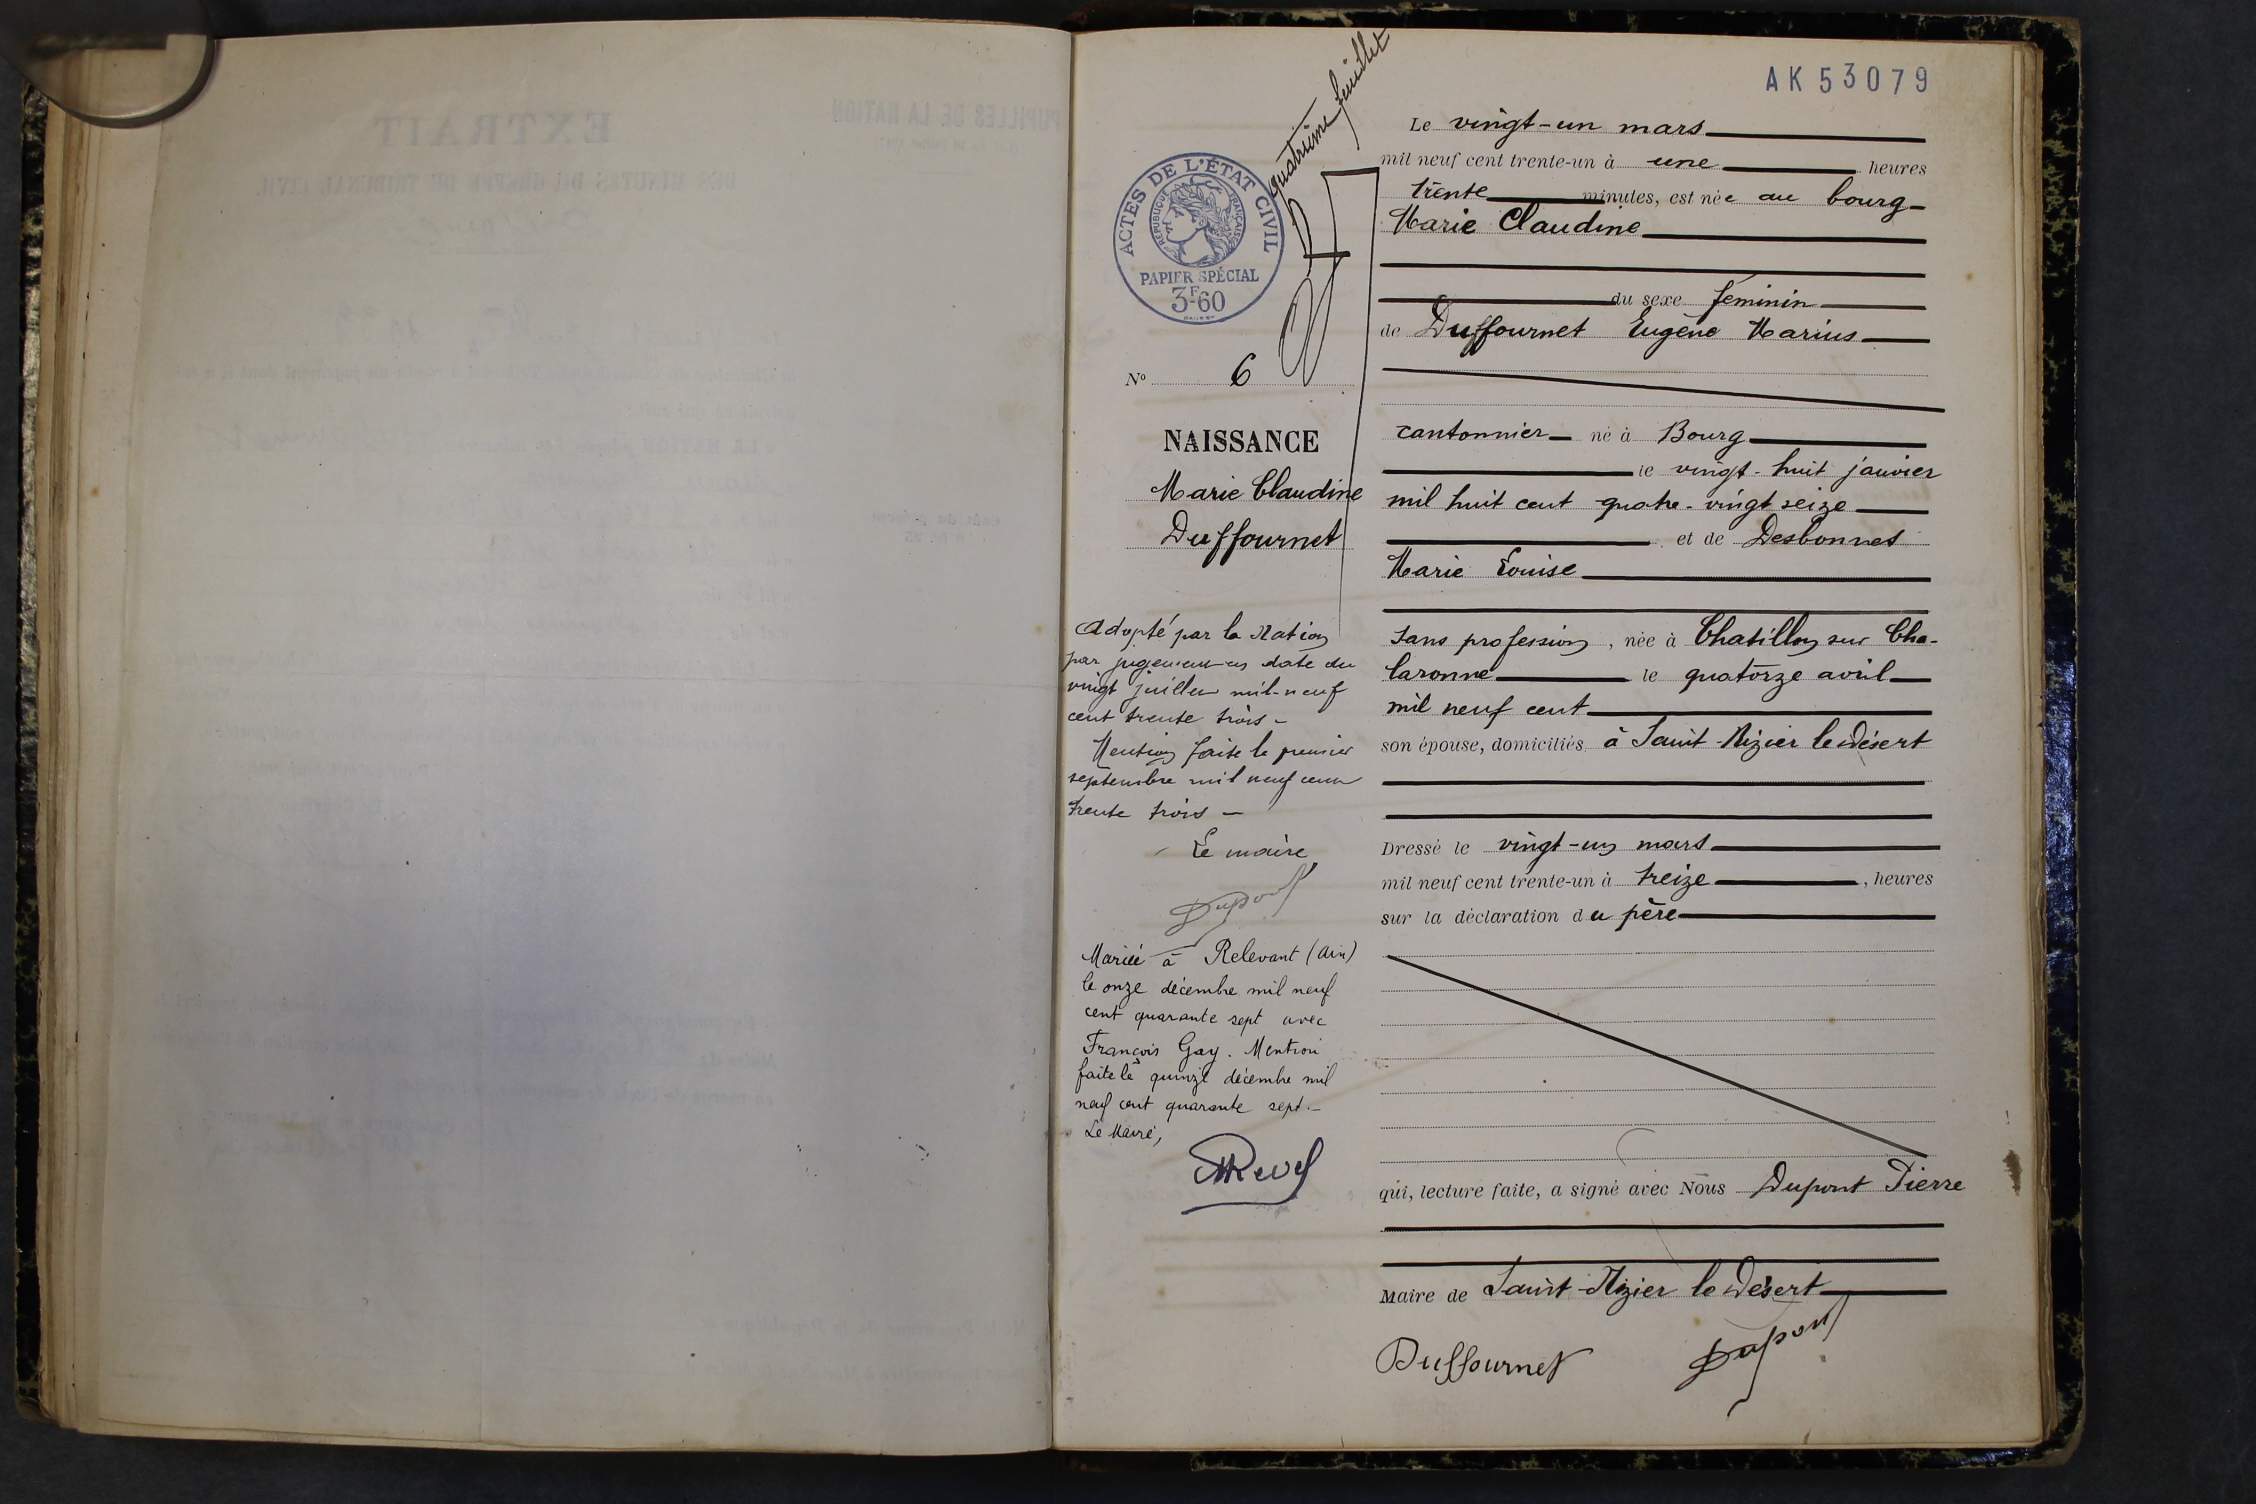 EXTRAIT
PUPILLES DE LA NATION
DES MINUTES DU GREFFE DU TRIBUNAL CIVIL
quatrième feuillet
AK53079
ACTES DE L'ÉTAT CIVIL
RÉPUBLIQUE FRANÇAISE
PAPIER SPÉCIAL
3F-60
N° 6
NAISSANCE
Marie Claudine
Duffournet
Adopté par la Nation
par jugement en date du
vingt juillet mil-neuf
cent trente trois -
Mention faite le premier
septembre mil neuf cent
trente trois -
Le maire
Dupont
Mariée à Relevant (Ain)
le onze décembre mil neuf
cent quarante sept avec
François Gay. Mention
faite le quinze décembre mil
neuf cent quarante sept.-
Le Maire,
Le vingt-un mars
mil neuf cent trente-un à une heures
trente minutes, est née au bourg
Marie Claudine
du sexe féminin
de Duffournet Eugène Marius
cantonnier né à Bourg
le vingt-huit janvier
mil huit cent quatre-vingt seize
et de Desbonnet
Marie Louise
sans profession, née à Chatillon sur Cha-
laronne le quatorze avril
mil neuf cent
son épouse, domiciliés à Saint-Nizier le Désert
Dressé le vingt-un mars
mil neuf cent trente-un à treize, heures
sur la déclaration du père
qui, lecture faite, a signé avec Nous Dupont Pierre
Maire de Saint-Nizier le Désert
Duffournet
Dupont